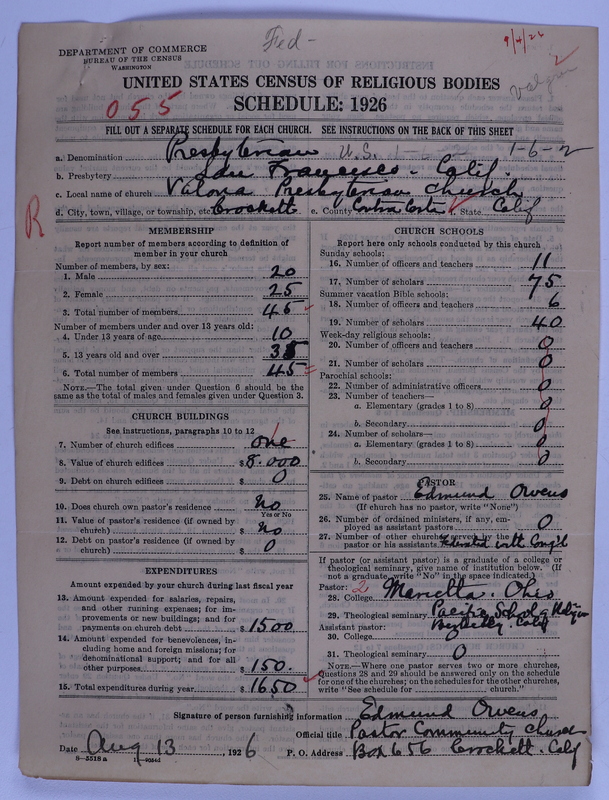 DEPARTMENT OF COMMERCE
BUREAU OF THE CENSUS
WASHINGTON
Fed-
9/4/26
UNITED STATES CENSUS OF RELIGIOUS BODIES
SCHEDULE: 1926
055
FILL OUT A SEPARATE SCHEDULE FOR EACH CHURCH. SEE INSTRUCTIONS ON THE BACK OF THIS SHEET
a. Denomination Presbyterian U.S. 1-6-2
b. Presbytery San Francisco - Calif.
c. Local name of church Valona Presbyterian Church
d. City, town, village, or township, etc. Crockett e. County Contra Costa f. State Calif
R
MEMBERSHIP
Report number of members according to definition of
member in your church
Number of members, by sex:
1. Male 20
2. Female 25
3. Total number of members 45
Number of members under and over 13 years old:
4. Under 13 years of age 10
5. 13 years old and over 35
6. Total number of members 45
NOTE.—The total given under Question 6 should be the
same as the total of males and females given under Question 3.
CHURCH BUILDINGS
See instructions, paragraphs 10 to 12
7. Number of church edifices one
8. Value of church edifices $ 8.000
9. Debt on church edifices $ 0
10. Does church own pastor's residence No
Yes or No
11. Value of pastor's residence (if owned by
church) $ No
12. Debt on pastor's residence (if owned by
church) $ 0
EXPENDITURES
Amount expended by your church during last fiscal year
13. Amount expended for salaries, repairs,
and other running expenses; for im-
provements or new buildings; and for
payments on church debt $ 1500
14. Amount expended for benevolences, in-
cluding home and foreign missions; for
denominational support; and for all
other purposes $ 150.
15. Total expenditures during year $ 1650
CHURCH SCHOOLS
Report here only schools conducted by this church
Sunday schools:
16. Number of officers and teachers 11
17. Number of scholars 75
Summer vacation Bible schools:
18. Number of officers and teachers 6
19. Number of scholars 40
Week-day religious schools:
20. Number of officers and teachers 0
21. Number of scholars 0
Parochial schools:
22. Number of administrative officers 0
23. Number of teachers—
a. Elementary (grades 1 to 8) 0
b. Secondary 0
24. Number of scholars—
a. Elementary (grades 1 to 8) 0
b. Secondary 0
PASTOR
25. Name of pastor Edmund Owens
(If church has no pastor, write "None")
26. Number of ordained ministers, if any, em-
ployed as assistant pastors 0
27. Number of other churches served by the
pastor or his assistants Federated with Cong'l
If pastor (or assistant pastor) is a graduate of a college or
theological seminary, give name of institution below. (If
not a graduate, write "No" in the space indicated.)
Pastor: 2
28. College Marietta. Ohio
29. Theological seminary Pacific School of Religion
Berkeley. Calif
Assistant pastor:
30. College
31. Theological seminary 0
NOTE.—Where one pastor serves two or more churches,
Questions 28 and 29 should be answered only on the schedule
for one of the churches; on the schedules for the other churches,
write "See schedule for church."
Signature of person furnishing information Edmund Owens
Official title Pastor Community Church
Date Aug 13, 1926 P. O. Address Box 656 Crockett. Calif
8—5518 a